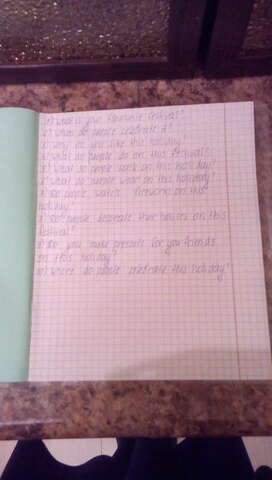 1) What is your favourite festival?
2) When do people celebrate it?
3) Why do you like this holiday?
4) What do people do on this festival?
5) What do people cook on this holiday?
6) What do people wear on this holiday?
7) Do people watch fireworks on this
holiday?
8) Do people decorate their houses on this
festival?
9) Do you make presents for you friends
on this holiday?
10) Where do people celebrate this holiday?